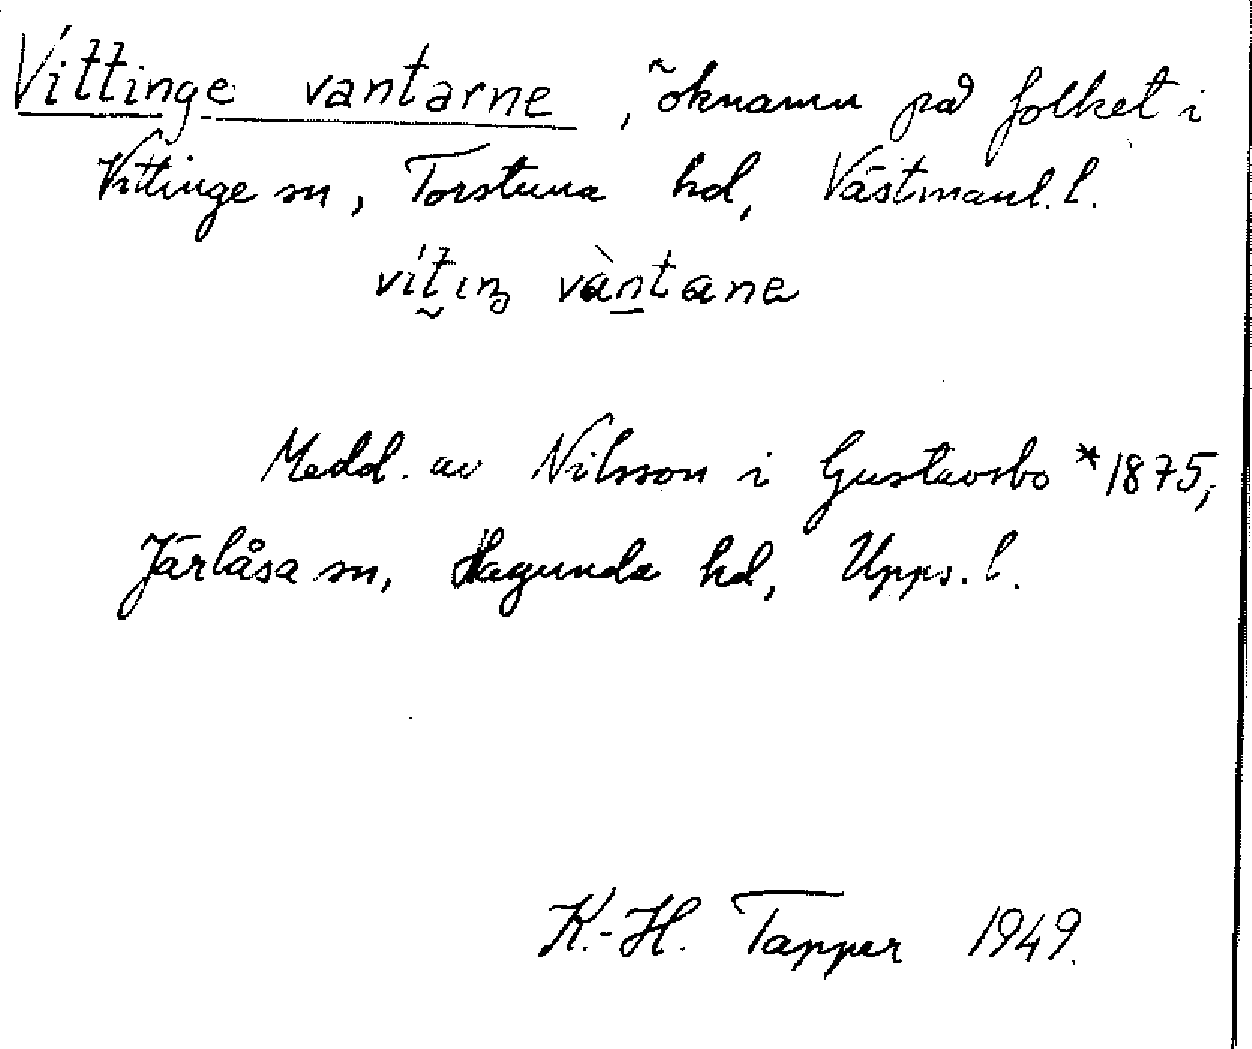 Vittinge vantarne, öknamn på folket i
Vittinge sn, Torstuna hd, Västmanl. l.
vít̰ıŋ vàn̲tane
Medd. av Nilsson i Gustavsbo *1875,
Järlåsa sn, Hagunda hd, Upps. l.
K.-H. Tapper 1949.